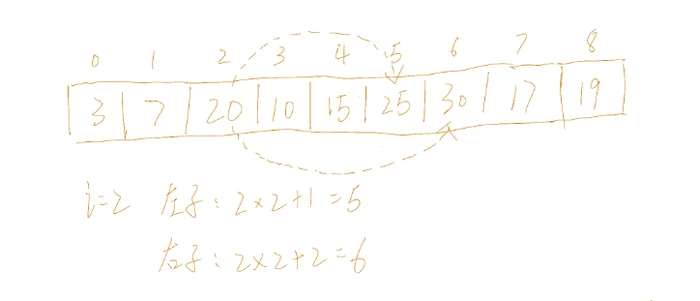 0 1 2 3 4 5 6 7 8
3 7 20 10 15 25 30 17 19
i=2 左子:2×2+1=5
右子:2×2+2=6